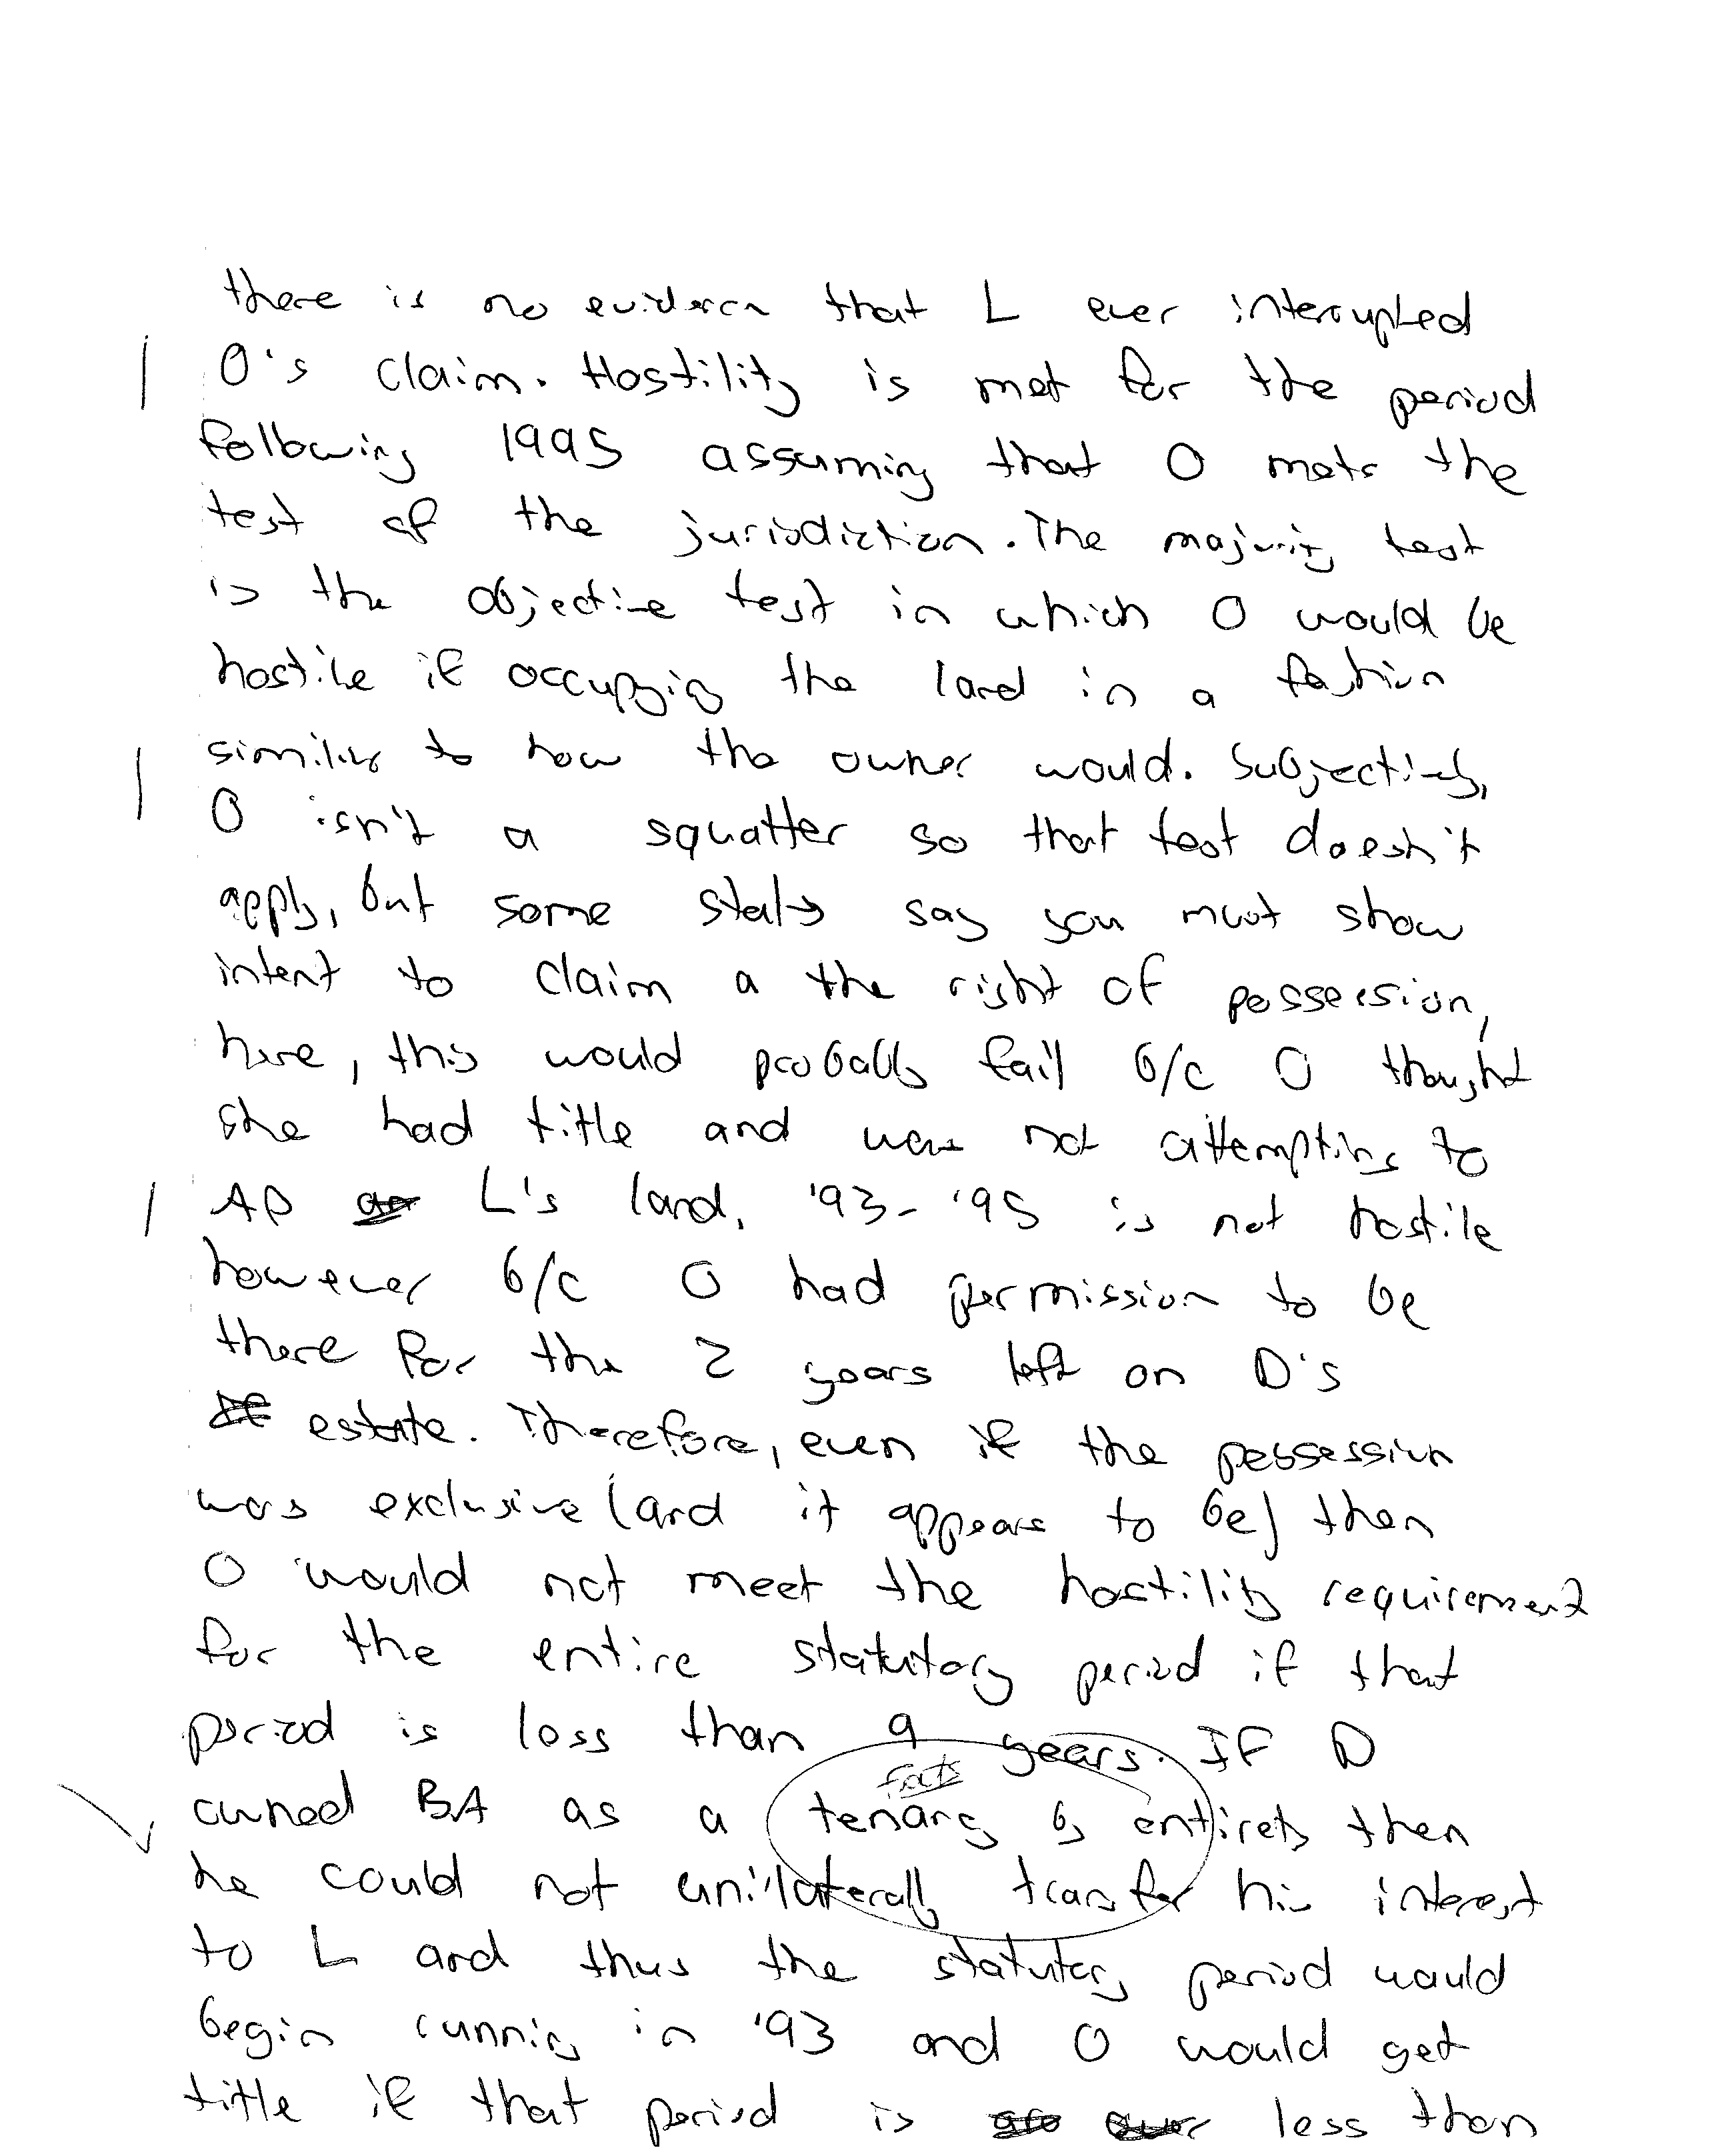 there is no evidence that L ever interrupted
O's claim. Hostility is met for the period
following 1995 assuming that O mets the
test of the jurisdiction. The majority test
is the objective test in which O would be
hostile if occupying the land in a fashion
similar to how the owner would. Subjectively,
O isn't a squatter so that test doesn't
apply, but some states say you must show
intent to claim a the right of possession,
here, this would probably fail b/c O thought
she had title and was not attempting to
AP L's land. '93-'95 is not hostile
however b/c O had permission to be
there for the 2 years left on D's
estate. Therefore, even if the possession
was exclusive (and it appears to be) then
O would not meet the hostility requirement
for the entire statutory period if that
period is less than 9 years. If D
facts
owned BA as a tenancy by entirety then
he could not unilaterally transfer his interest
to L and thus the statutory period would
begin running in '93 and O would get
title if that period is less than